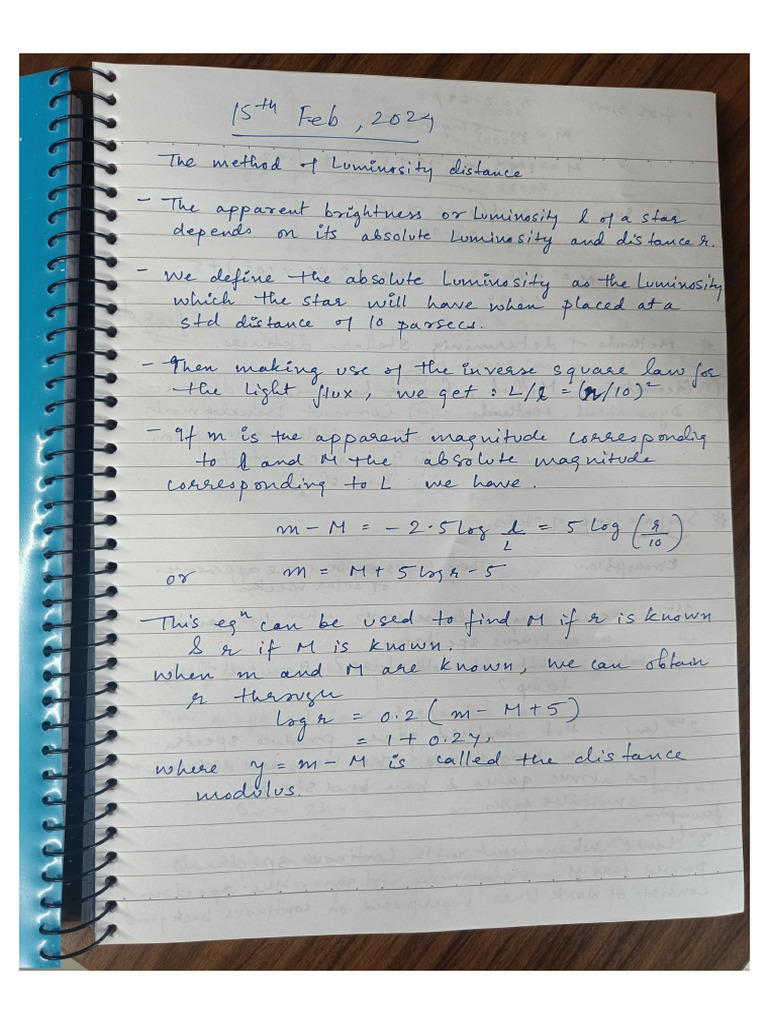 15th Feb, 2024
The method of Luminosity distance
- The apparent brightness or Luminosity l of a star
depends on its absolute Luminosity and distance r.
- We define the absolute Luminosity as the Luminosity
which the star will have when placed at a
std distance of 10 parsecs.
- Then making use of the inverse square law for
the light flux, we get : L/l = (r/10)²
- If m is the apparent magnitude corresponding
to l and M the absolute magnitude
corresponding to L we have.
m - M = - 2.5 log l/L = 5 log (r/10)
or m = M + 5 log r - 5
This eqn can be used to find M if r is known
& r if M is known.
When m and M are known, we can obtain
r through
log r = 0.2 ( m - M + 5 )
= 1 + 0.2y,
where y = m - M is called the distance
modulus.